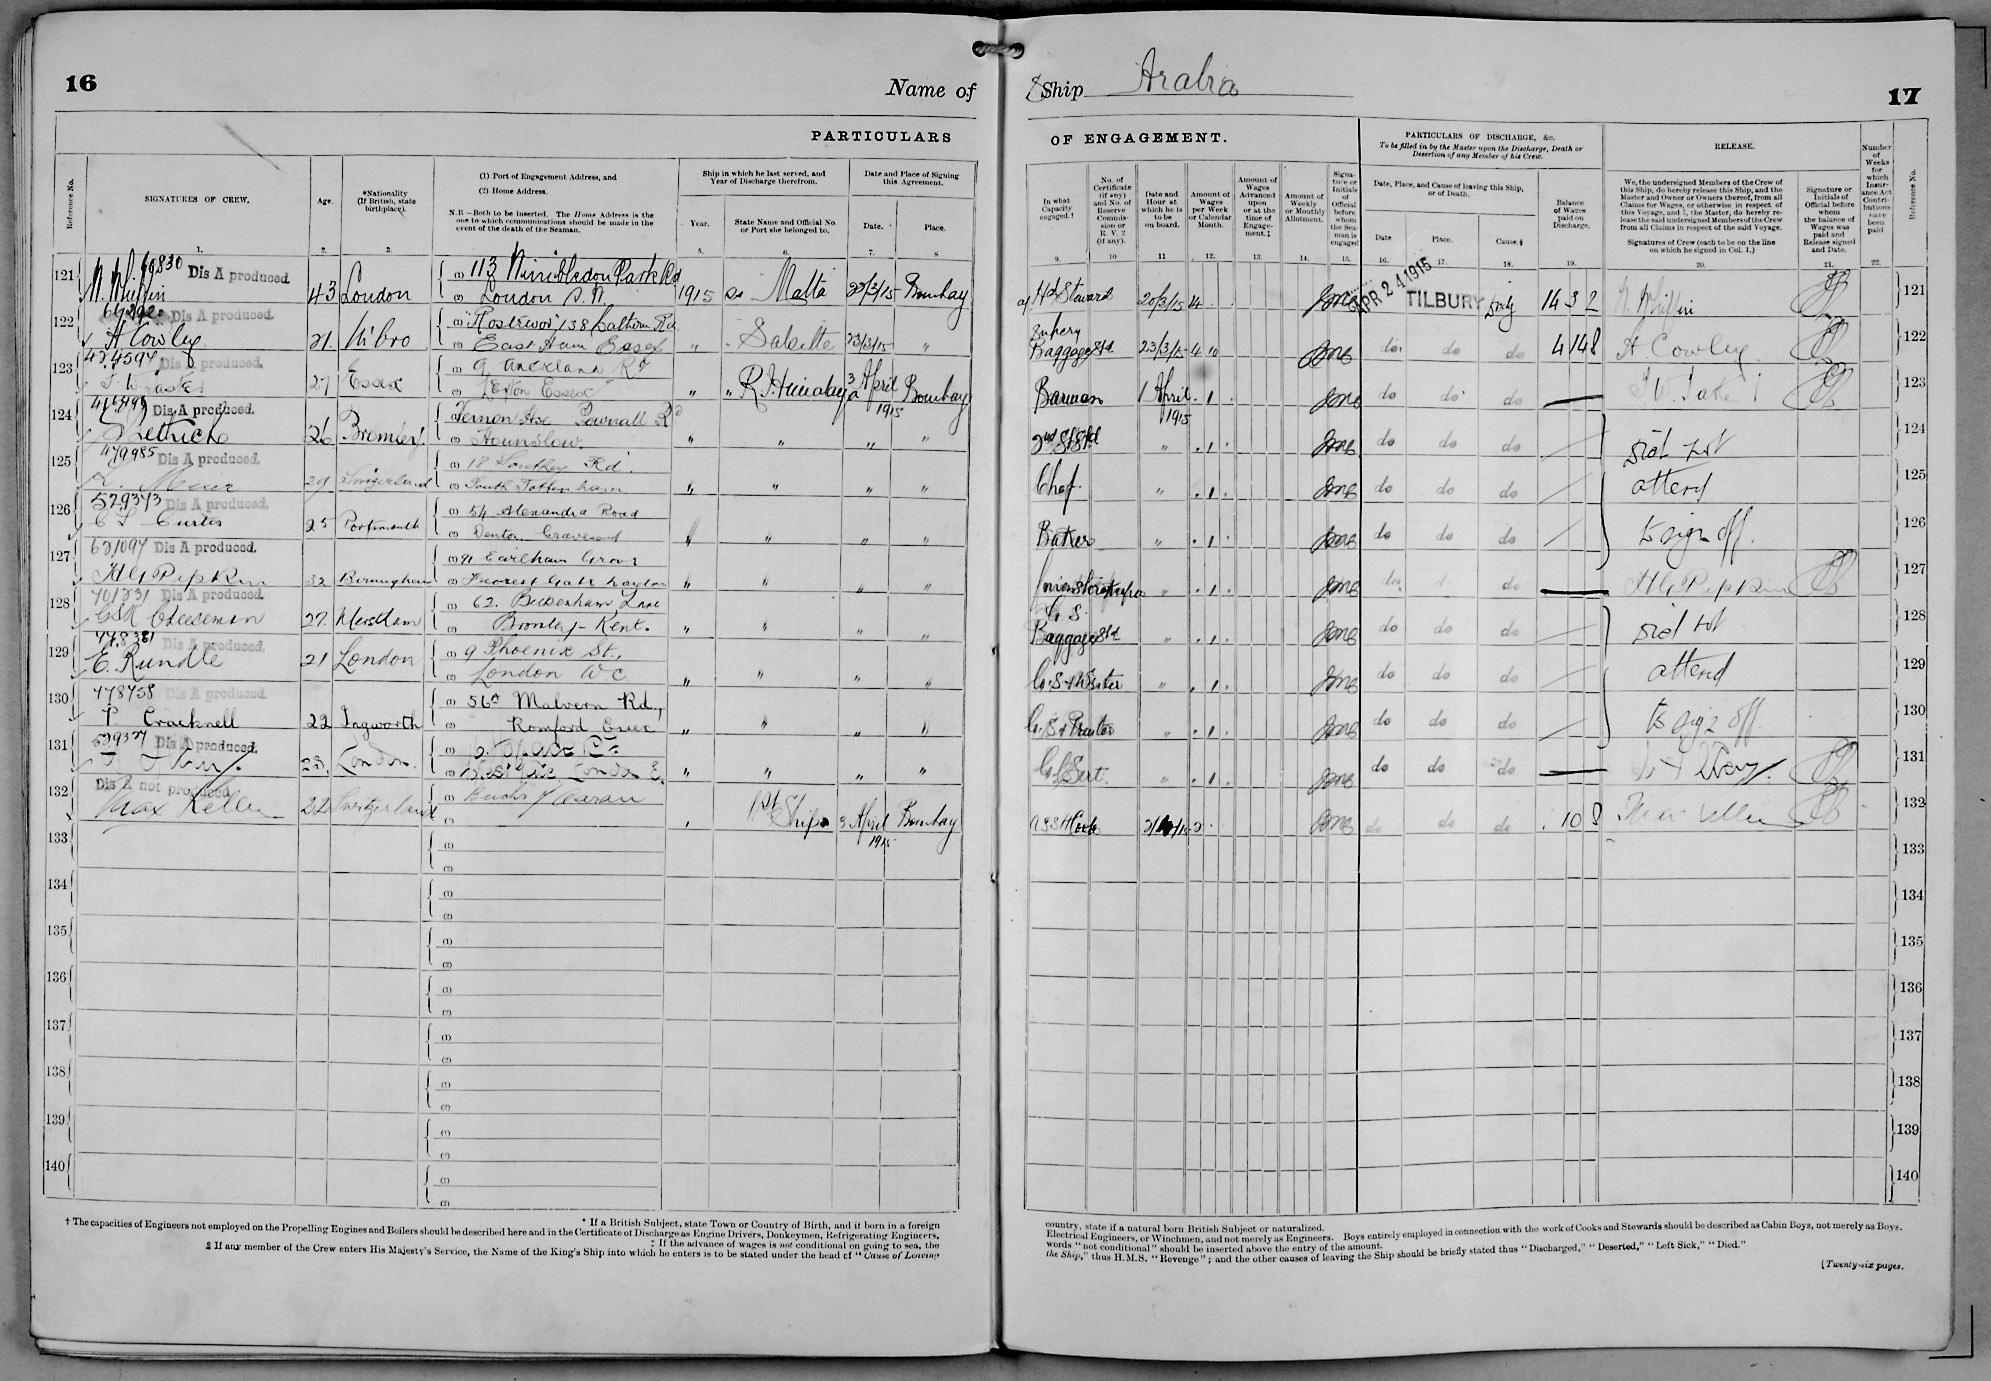 16
Name of
Ship Arabia
17
PARTICULARS
OF ENGAGEMENT.
Reference No.
SIGNATURES OF CREW.
Age.
*Nationality
(If British, state
birthplace).
(1) Port of Engagement Address, and
(2) Home Address.
N.B.—Both to be inserted. The Home Address is the
one to which communications should be made in the
event of the death of the Seaman.
Ship in which he last served, and
Year of Discharge therefrom.
Year.
State Name and Official No
or Port she belonged to.
Date and Place of Signing
this Agreement.
Date.
Place.
In what
Capacity
engaged.†
No. of
Certificate
(if any)
and No. of
Reserve
Commis-
sion or
R. V. 2
(if any).
Date and
Hour at
which he is
to be
on board.
Amount of
Wages
per Week
or Calendar
Month.
Amount of
Wages
Advanced
upon
or at the
time of
Engage-
ment.‡
Amount of
Weekly
or Monthly
Allotment.
Signa-
ture or
Initials
of
Official
before
whom
the Sea-
man is
engaged
PARTICULARS OF DISCHARGE, &c.
To be filled in by the Master upon the Discharge, Death or
Desertion of any Member of his Crew.
Date, Place, and Cause of leaving this Ship,
or of Death.
Date.
Place.
Cause.§
Balance
of Wages
paid on
Discharge.
RELEASE.
We, the undersigned Members of the Crew of
this Ship, do hereby release this Ship, and the
Master and Owner or Owners thereof, from all
Claims for Wages, or otherwise in respect of
this Voyage, and I, the Master, do hereby re-
lease the said undersigned Members of the Crew
from all Claims in respect of the said Voyage.
Signatures of Crew (each to be on the line
on which he signed in Col. 1.)
Signature or
Initials of
Official before
whom
the balance of
Wages was
paid and
Release signed
and Date.
Number
of
Weeks
for
which
Insur-
ance Act
Contri-
butions
have
been
paid
Reference No.
1. 2. 3. 5. 6. 7. 8
9. 10 11 12. 13. 14. 15. 16. 17. 18. 19. 20. 21. 22.
121 Dis A produced 43 London (1) 113 Wimbledon Park Rd (2) London S.W. 1915 SS Malta 20/3/15 Bombay
Hd Steward 20/3/15 14 APR 24 1915 TILBURY 14 3 2 121
122 Dis A produced. H Cowley 21 (1) 138 Lathom Rd (2) East Ham Essex " Salsette 23/3/15 "
Baggage Std. 23/3/15 4 10 do do do 4 14 8 H Cowley 122
123 424594 Dis A produced. 27 Essex (1) 9 Auckland Rd (2) Leyton Essex " " 3 April 1915 Bombay
Barman 1 April 1915 . 1 . do do do 123
124 Dis A produced. 26 Bromley (2) Hounslow. " " " "
" . 1 . do do do did not 124
125 479985 Dis A produced. Meier 29 Switzerland (1) 18 Rd. (2) South Tottenham " " " "
Chef " . 1 . do do do attend 125
126 529373 Dis A produced. Curtis 25 Portsmouth (1) 54 Alexandra Road (2) Denton Gravesend " " " "
Baker " . 1 . do do do to sign off. 126
127 621097 Dis A produced. H G Pipkin 32 Birmingham (1) 91 Earlham Grove (2) Forest Gate London " " " "
" . 1 . do do do H G Pipkin 127
128 701231 Dis A produced. Cheeseman 27 (1) 62. Beckenham Lane (2) Bromley - Kent. " " " "
G. S. Baggage Std " . 1 . do do do did not 128
129 Dis A produced. E. Rundle 21 London (1) 9 Phoenix St., (2) London W.C " " " "
" . 1 . do do do attend 129
130 478738 Dis A produced. P Cracknell 22 Ingworth (1) 56A Malvern Rd., (2) Romford Essex " " " "
G. S & Printer " . 1 . do do do to sign off. 130
131 529327 Dis A produced. 23. London. (2) London E. " " " "
" . 1 . do do do 131
132 Dis A not produced Max Keller 22 Switzerland (1) Buchs / Aarau 1st Ship 3 April 1915 Bombay
Cook do do do . 10 8 132
133 133
134 134
135 135
136 136
137 137
138 138
139 139
140 140
* If a British Subject, state Town or Country of Birth, and if born in a foreign
† The capacities of Engineers not employed on the Propelling Engines and Boilers should be described here and in the Certificate of Discharge as Engine Drivers, Donkeymen, Refrigerating Engineers,
‡ If the advance of wages is not conditional on going to sea, the
§ If any member of the Crew enters His Majesty's Service, the Name of the King's Ship into which he enters is to be stated under the head of "Cause of Leaving
country, state if a natural born British Subject or naturalized.
Electrical Engineers, or Winchmen, and not merely as Engineers. Boys entirely employed in connection with the work of Cooks and Stewards should be described as Cabin Boys, not merely as Boys.
words "not conditional" should be inserted above the entry of the amount.
the Ship," thus H.M.S. "Revenge"; and the other causes of leaving the Ship should be briefly stated thus "Discharged," "Deserted," "Left Sick," "Died."
[Twenty-six pages.